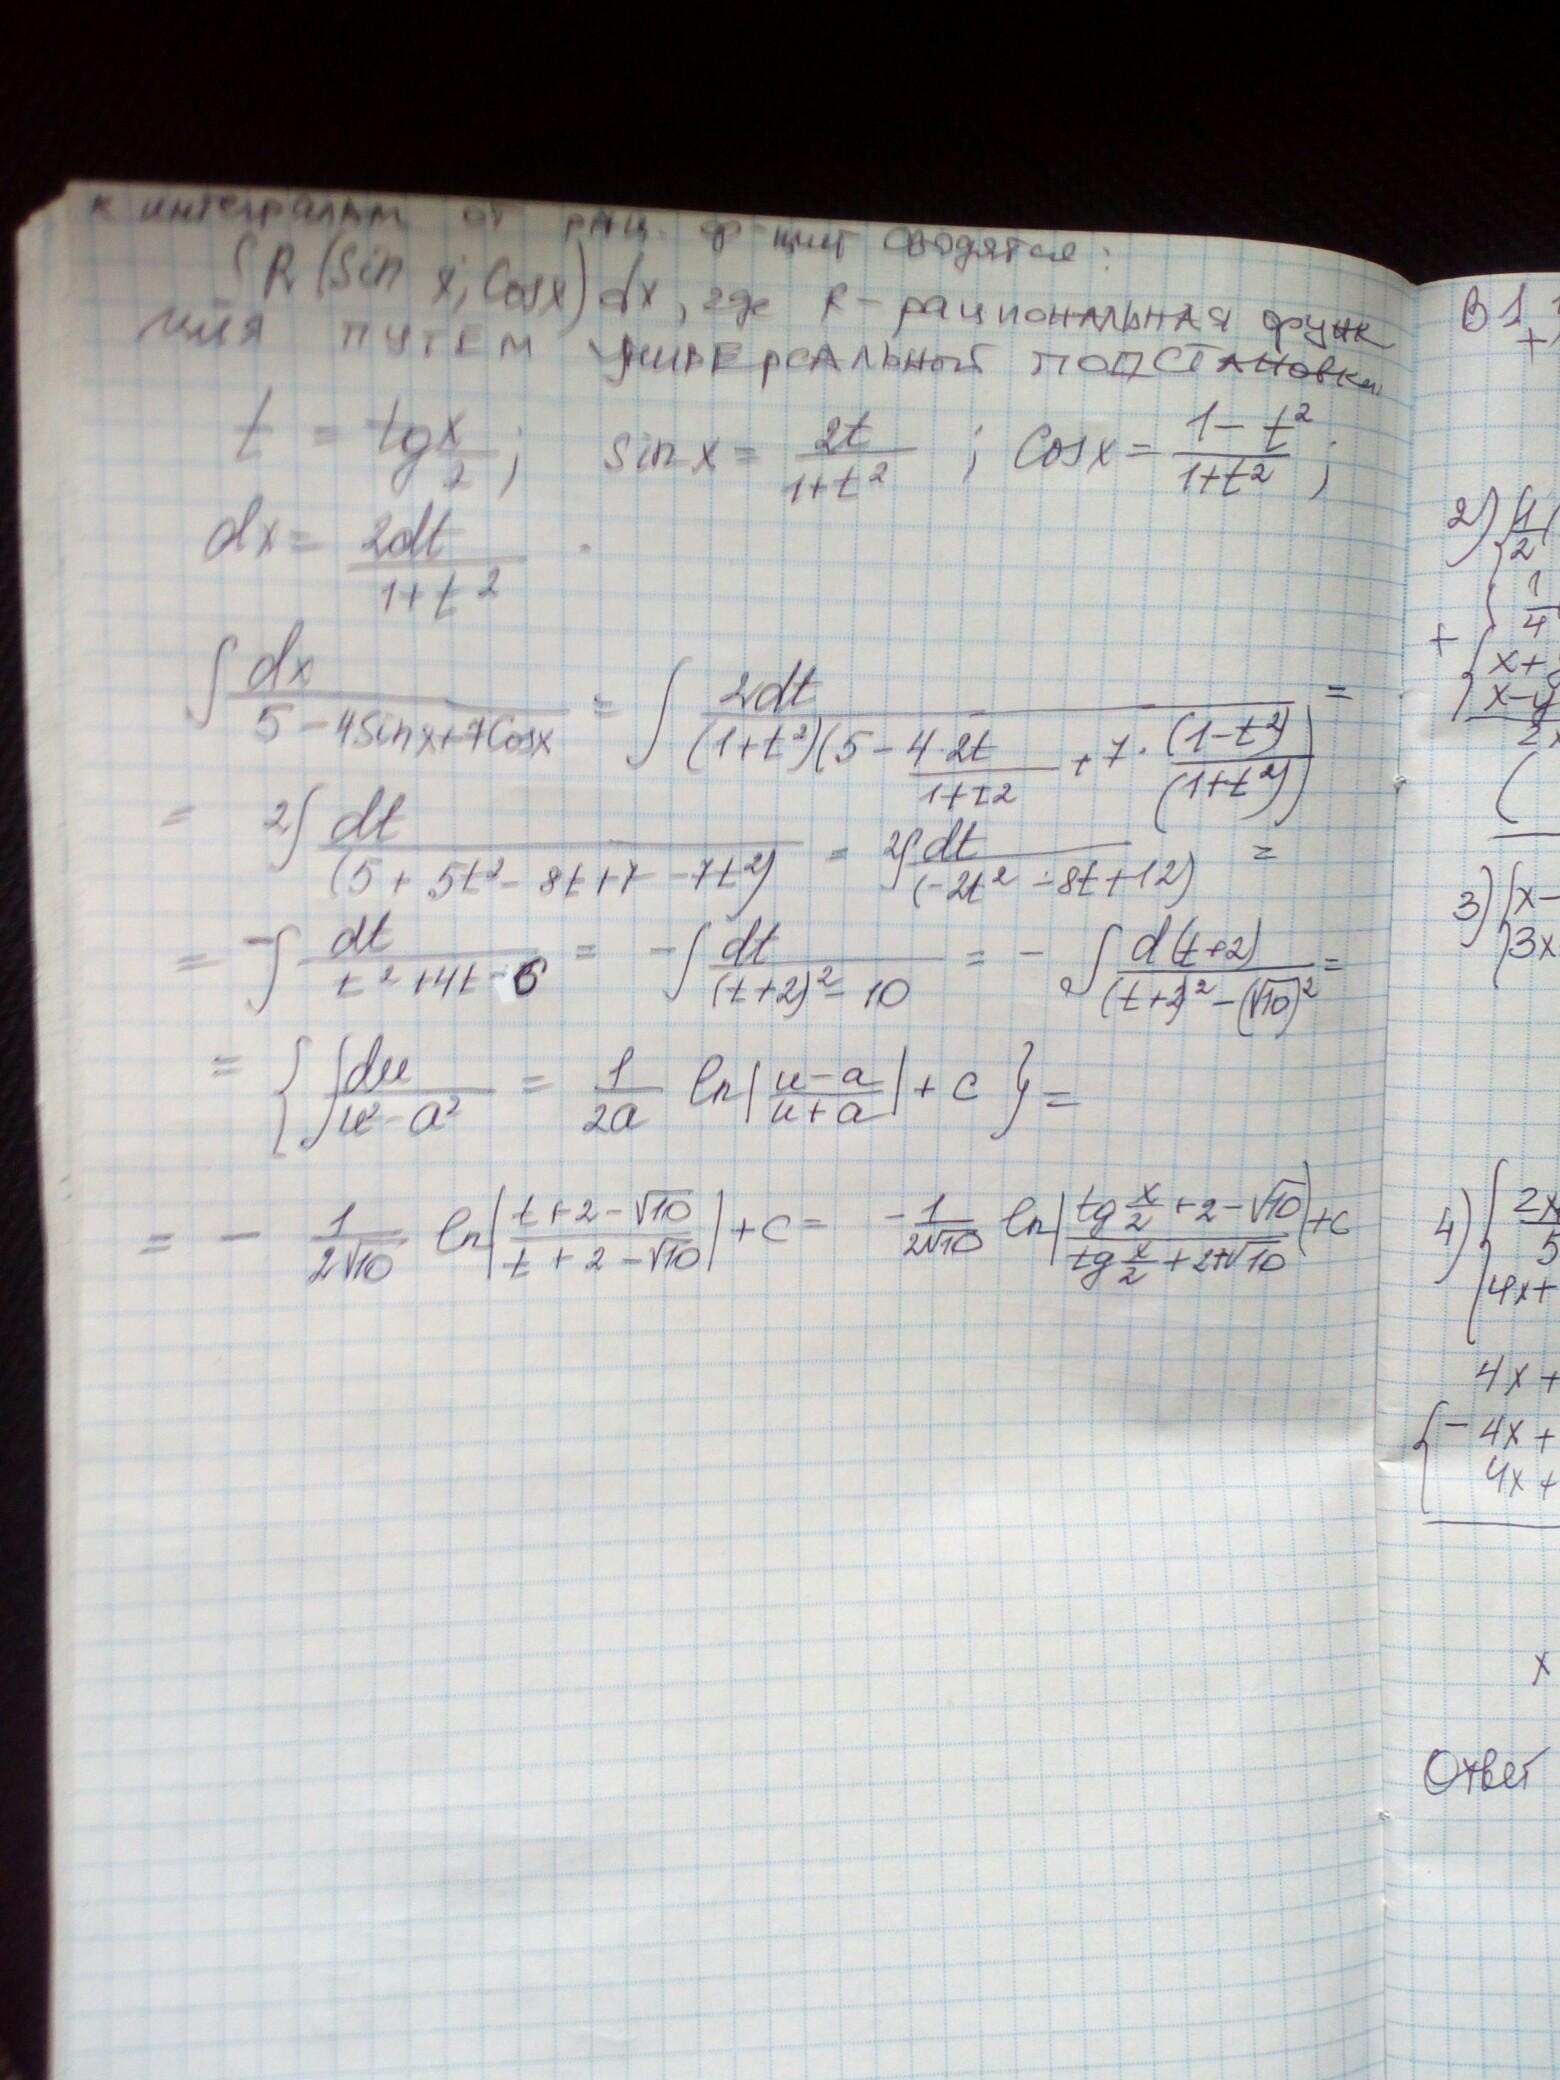 к интегралам от рац. ф-ций сводятся:
∫R(Sin x; Cosx)dx, где R - рациональная функ
ция путем универсальной подстановки
t = tg x/2; sin x = 2t/(1+t²); Cosx = (1-t²)/(1+t²);
dx = 2dt/(1+t²).
∫ dx/(5-4Sinx+7Cosx) = ∫ 2dt/((1+t²)(5 - 4·2t/(1+t2) + 7·(1-t²)/(1+t²))) =
= 2∫ dt/(5+5t²-8t+7-7t²) = 2∫ dt/(-2t²-8t+12) =
= -∫ dt/(t²+4t-6) = -∫ dt/((t+2)²-10) = -∫ d(t+2)/((t+2)²-(√10)²) =
= {∫ du/(u²-a²) = 1/2a ln|(u-a)/(u+a)| + c} =
= - 1/(2√10) ln|(t+2-√10)/(t+2-√10)| + c = -1/(2√10) ln|(tg x/2 +2-√10)/(tg x/2 +2+√10)| + c
В1
+
2) {1/2 (
{ 1/4
+ { x+
x-y
2x
(
3) { x-
3x
4) { 2x/5
4x+
4x+
{ - 4x+
4x+
x
Ответ